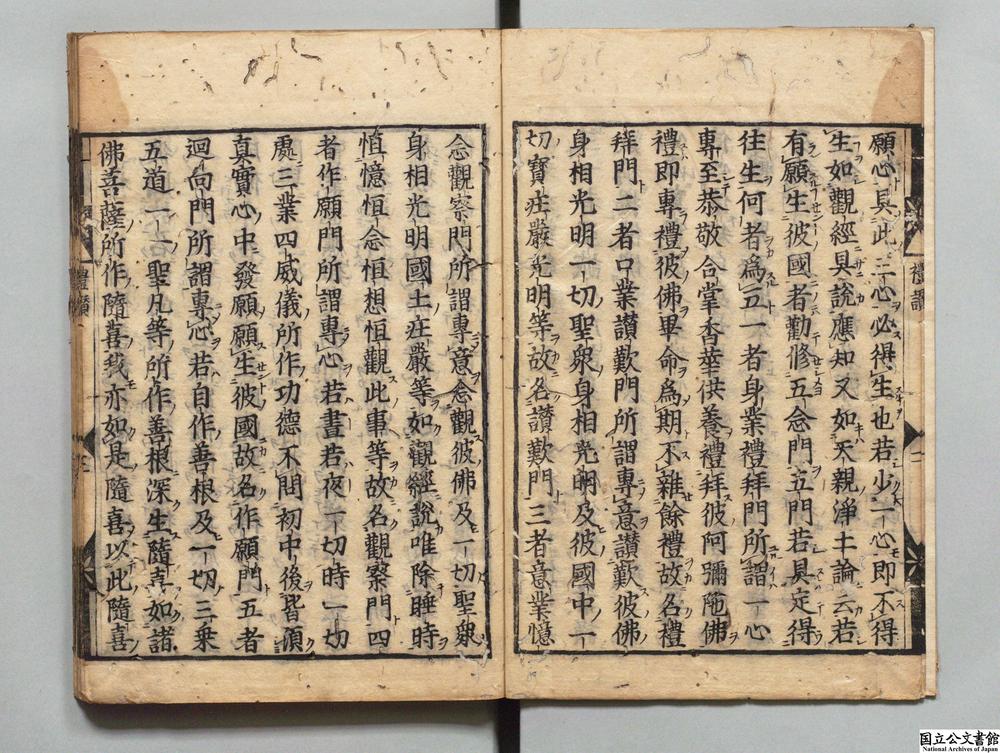 願心具此三心必得生也若少一心即不得
生如觀經具說應知又如天親淨土論云若
有願生彼國者勸修五念門五門若具定得
往生何者爲五一者身業禮拜門所謂一心
專至恭敬合掌香華供養禮拜彼阿彌陁佛
禮即專禮彼佛畢命爲期不雜餘禮故名禮
拜門二者口業讃歎門所謂專意讃歎彼佛
身相光明一切聖衆身相光明及彼國中一
切寶莊嚴光明等故名讃歎門三者意業憶
禮讃
二
念觀察門所謂專意念觀彼佛及一切聖衆
身相光明國土莊嚴等如觀經說唯除睡時
恒憶恒念恒想恒觀此事等故名觀察門四
者作願門所謂專心若晝若夜一切時一切
處三業四威儀所作功德不問初中後皆須
真實心中發願願生彼國故名作願門五者
迴向門所謂專心若自作善根及一切三乘
五道一一聖凡等所作善根深生隨喜如諸
佛菩薩所作隨喜我亦如是隨喜以此隨喜
禮讃
国立公文書館
National Archives of Japan